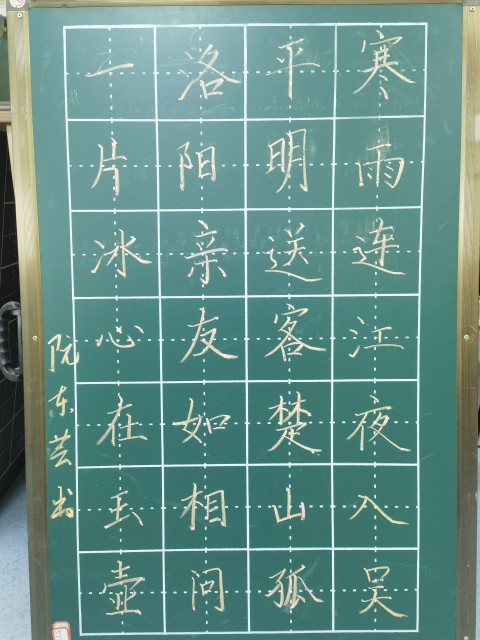 寒雨连江夜入吴
平明送客楚山孤
洛阳亲友如相问
一片冰心在玉壶
阮东芸书